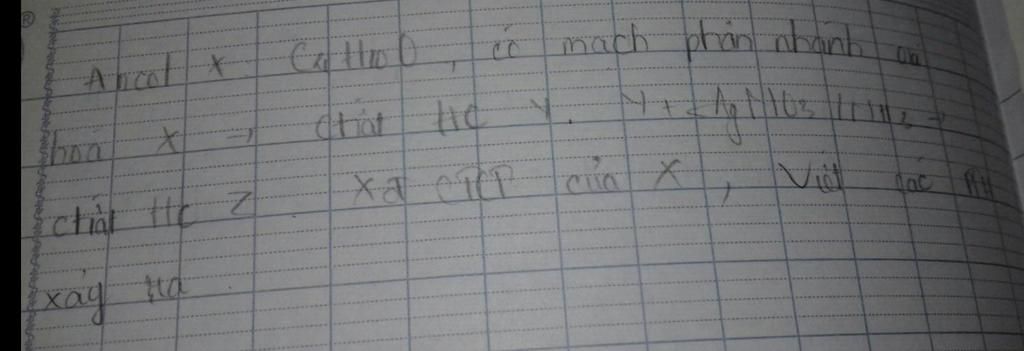 Ancol X C4H10O, có mạch phân nhánh oxi
hoá X → chất HC Y. Y + AgNO3/NH3 →
chất HC Z. Xđ CTCT của X, Viết các PTHH
xảy ra